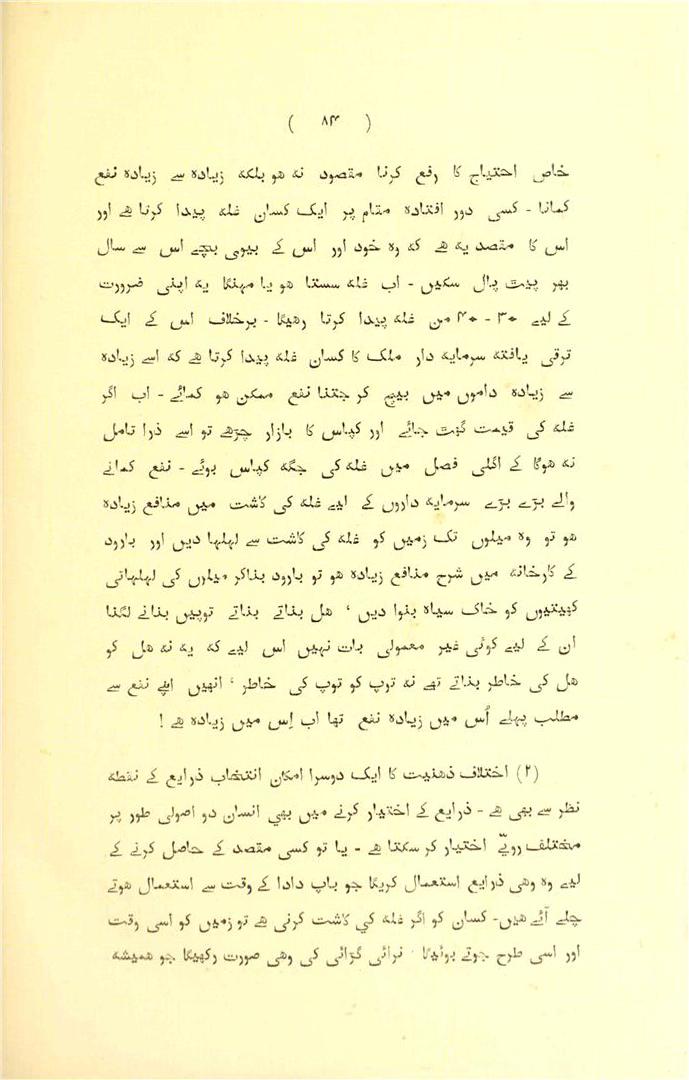 ( ۸۴ )
خاص احتیاج کا رفع کرنا مقصود نہ ھو بلکہ زیادہ سے زیادہ نفع
کمانا - کسی دور افتادہ مقام پر ایک کسان غلہ پیدا کرتا ھے اور
اس کا مقصد یہ ھے کہ وہ خود اور اس کے بیوی بچے اس سے سال
بھر پیٹ پال سکیں - اب غلہ سستا ھو یا مہنگا یہ اپنی ضرورت
کے لیے ۳۰ - ۴۰ من غلہ پیدا کرتا رھیگا - برخلاف اس کے ایک
ترقی یافتہ سرمایہ دار ملک کا کسان غلہ پیدا کرتا ھے کہ اسے زیادہ
سے زیادہ داموں میں بیچ کر جتنا نفع ممکن ھو کمائے - اب اگر
غلہ کی قیمت گھٹ جائے اور کپاس کا بازار چڑھے تو اسے ذرا تامل
نہ ھوگا کے اگلی فصل میں غلہ کی جگہ کپاس بوئے - نفع کمانے
والے بڑے بڑے سرمایہ داروں کے لیے غلہ کی کاشت میں منافع زیادہ
ھو تو وہ میلوں تک زمیں کو غلہ کی کاشت سے لہلہا دیں اور بارود
کے کارخانہ میں شرح منافع زیادہ ھو تو بارود بناکر میلوں کی لہلہاتی
کھیتیوں کو خاک سیاہ بنوا دیں ' ھل بناتے بناتے توپیں بنانے لگنا
ان کے لیے کوئی غیر معمولی بات نہیں اس لیے کہ یہ نہ ھل کو
ھل کی خاطر بناتے تھے نہ توپ کو توپ کی خاطر ' انھیں اپنے نفع سے
مطلب پہلے اُس میں زیادہ نفع تھا اب اِس میں زیادہ ھے !
(۲) اختلاف ذھنیت کا ایک دوسرا امکان انتخاب ذرایع کے نقطہ
نظر سے بھی ھے - ذرایع کے اختیار کرنے میں بھی انسان دو اصولی طور پر
مختلف رویّے اختیار کر سکتا ھے - یا تو کسی مقصد کے حاصل کرنے کے
لیے وہ وھی ذرایع استعمال کریگا جو باپ دادا کے وقت سے استعمال ھوتے
چلے آئے ھیں - کسان کو اگر غلہ کی کاشت کرنی ھے تو زمیں کو اسی وقت
اور اسی طرح جوتے بوئیگا ' نرائی گڑائی کی وھی صورت رکھیگا جو ھمیشہ